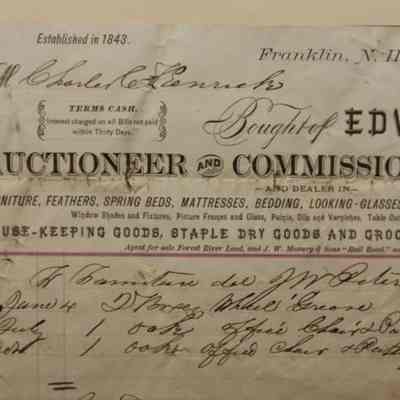 Established in 1843.
Franklin, N. H
M Charles C Kenrick
TERMS CASH.
Interest charged on all Bills not paid
within Thirty Days.
Bought of EDW
AUCTIONEER AND COMMISSIO
AND DEALER IN
NITURE, FEATHERS, SPRING BEDS, MATTRESSES, BEDDING, LOOKING-GLASSES
Window Shades and Fixtures, Picture Frames and Glass, Paints, Oils and Varnishes, Table Cut
USE-KEEPING GOODS, STAPLE DRY GOODS AND GROC
Agent for sale Forest River Lead, and J. W. Masury & Sons "Rail Road"
Furniture del J W Peter
June 4 Boxes Wheel Grease
July 1 oak office Chair &
1 oak office Chair &